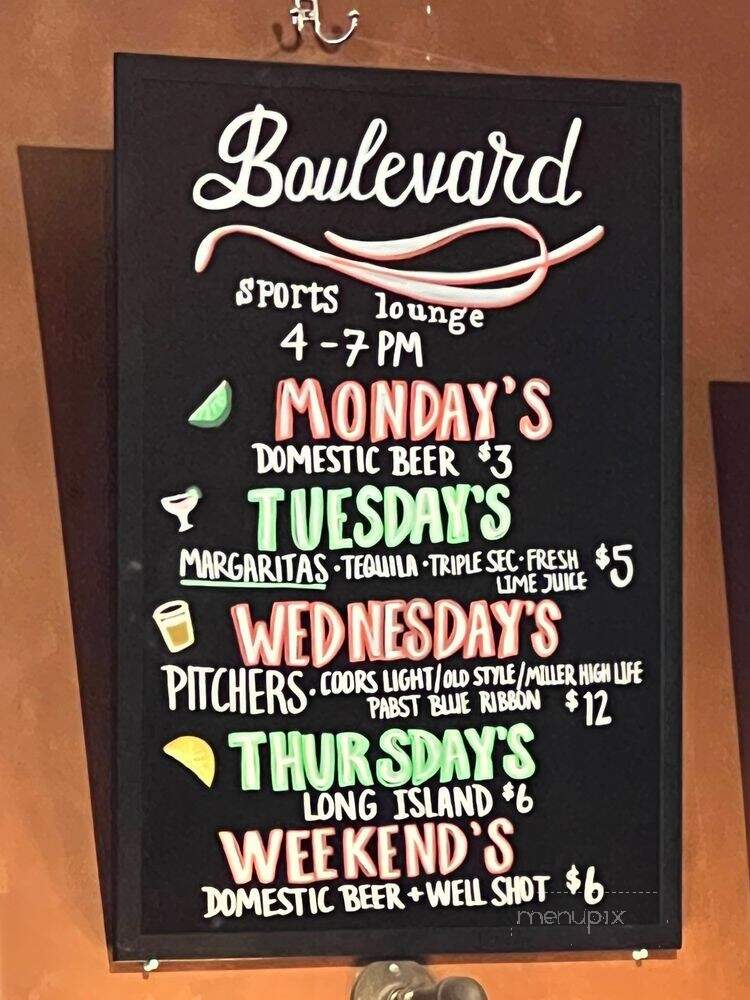 Boulevard
sports lounge
4-7 PM
MONDAY'S
DOMESTIC BEER $3
TUESDAY'S
MARGARITAS · TEQUILA · TRIPLE SEC · FRESH $5
LIME JUICE
WEDNESDAY'S
PITCHERS · COORS LIGHT/OLD STYLE/MILLER HIGH LIFE
PABST BLUE RIBBON $12
THURSDAY'S
LONG ISLAND $6
WEEKEND'S
DOMESTIC BEER + WELL SHOT $6
menupix